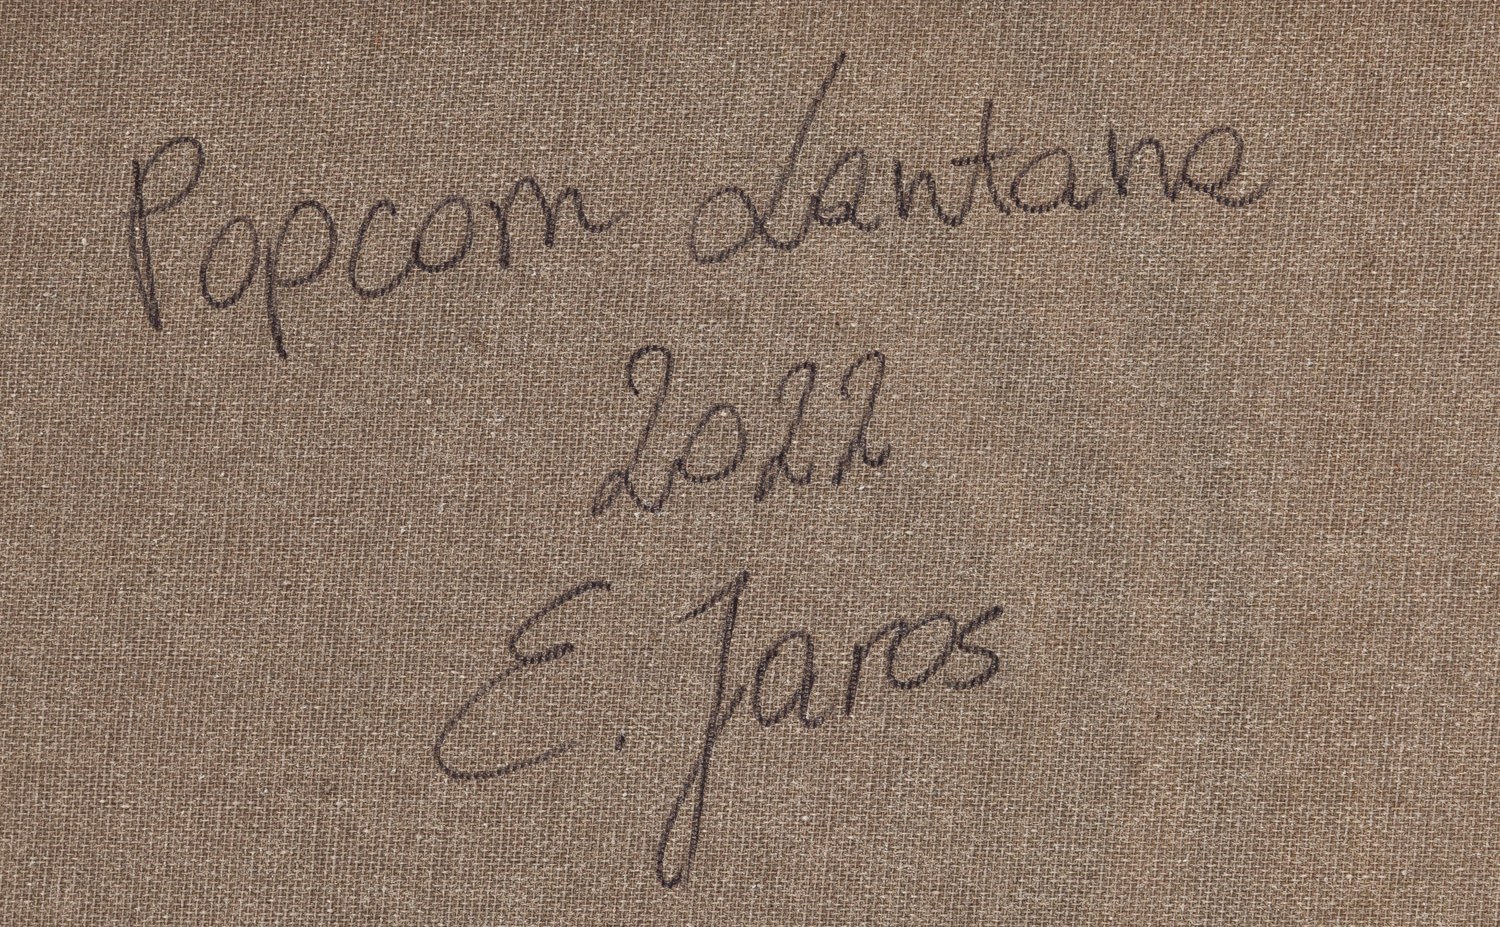 Popcorn Lantana
2022
E. Jaros